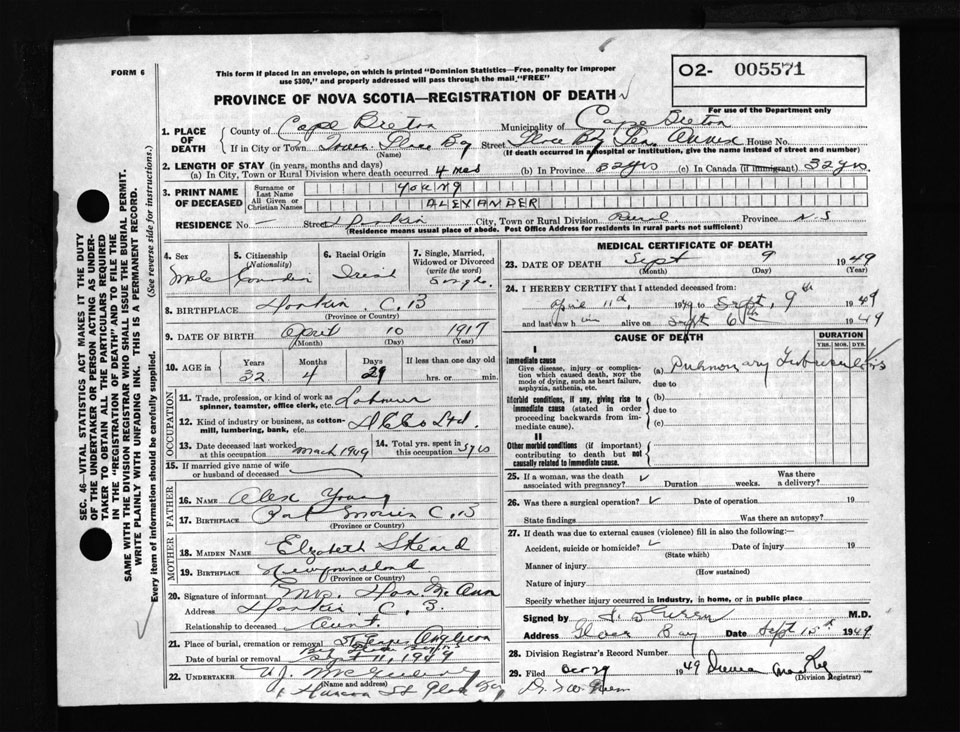 FORM 6
This form if placed in an envelope, on which is printed "Dominion Statistics—Free, penalty for improper
use $300," and properly addressed will pass through the mail "FREE"
02- 005571
PROVINCE OF NOVA SCOTIA—REGISTRATION OF DEATH
For use of the Department only
1. PLACE OF DEATH
County of Cape Breton Municipality of Cape Breton
If in City or Town Glace Bay Street Glace Bay Gen. Annex House No.
(Name) (If death occurred in a hospital or institution, give the name instead of street and number)
2. LENGTH OF STAY (in years, months and days)
(a) In City, Town or Rural Division where death occurred 4 mos (b) In Province 32 yrs (c) In Canada (if immigrant) 32 yrs.
3. PRINT NAME OF DECEASED
Surname or Last Name YOUNG
All Given or Christian Names ALEXANDER
RESIDENCE No. Street Donkin City, Town or Rural Division Rural Province N.S
(Residence means usual place of abode. Post Office Address for residents in rural parts not sufficient)
4. Sex
Male
5. Citizenship (Nationality)
Canadian
6. Racial Origin
Irish
7. Single, Married, Widowed or Divorced (write the word)
Single
8. BIRTHPLACE Donkin C.B
(Province or Country)
9. DATE OF BIRTH April 10 1917
(Month) (Day) (Year)
10. AGE in Years Months Days If less than one day old
32 4 29 hrs. or min.
OCCUPATION
11. Trade, profession or kind of work as spinner, teamster, office clerk, etc. Labourer
12. Kind of industry or business, as cotton-mill, lumbering, bank, etc. Ltd.
13. Date deceased last worked at this occupation March 1949
14. Total yrs. spent in this occupation yrs
15. If married give name of wife or husband of deceased
FATHER
16. NAME Alex Young
17. BIRTHPLACE Port Morien C.B
(Province or Country)
MOTHER
18. MAIDEN NAME Elizabeth
19. BIRTHPLACE Newfoundland
(Province or Country)
20. Signature of informant Mrs.
Address Donkin C.B.
Relationship to deceased Aunt.
21. Place of burial, cremation or removal Anglican
Date of burial or removal Sept 11, 1949
22. UNDERTAKER
(Name and address)
St Glace Bay
MEDICAL CERTIFICATE OF DEATH
23. DATE OF DEATH Sept 9 1949
(Month) (Day) (Year)
24. I HEREBY CERTIFY that I attended deceased from:
April 11th, 1949 to Sept, 9th 1949
and last saw him alive on Sept 6th 1949
CAUSE OF DEATH
DURATION
YRS. MOS. DYS.
I
Immediate cause
Give disease, injury or complication which caused death, NOT the mode of dying, such as heart failure, asphyxia, asthenia, etc.
(a) Pulmonary Tuberculosis
due to
Morbid conditions, if any, giving rise to immediate cause (stated in order proceeding backwards from immediate cause).
(b)
due to
(c)
II
Other morbid conditions (if important) contributing to death but not causally related to immediate cause.
25. If a woman, was the death associated with pregnancy? Duration weeks. Was there a delivery?
26. Was there a surgical operation? Date of operation 19
State findings Was there an autopsy?
27. If death was due to external causes (violence) fill in also the following:—
Accident, suicide or homicide? Date of injury 19
(State which)
Manner of injury
(How sustained)
Nature of injury
Specify whether injury occurred in industry, in home, or in public place
Signed by M.D.
Address Glace Bay Date Sept 15th 1949
28. Division Registrar's Record Number
29. Filed Oct 29 1949
(Division Registrar)
SEC. 46—VITAL STATISTICS ACT MAKES IT THE DUTY
OF THE UNDERTAKER OR PERSON ACTING AS UNDER-
TAKER TO OBTAIN ALL THE PARTICULARS REQUIRED
IN THE "REGISTRATION OF DEATH" AND TO FILE THE
SAME WITH THE DIVISION REGISTRAR WHO SHALL ISSUE THE BURIAL PERMIT.
WRITE PLAINLY WITH UNFADING INK. THIS IS A PERMANENT RECORD.
Every item of information should be carefully supplied. (See reverse side for instructions.)